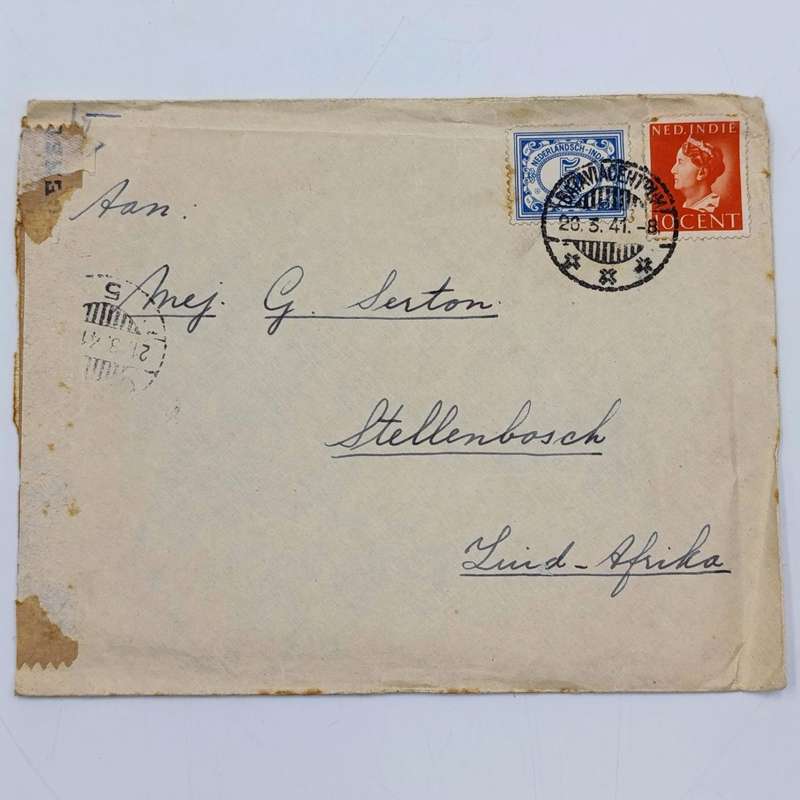 NEDERLANDSCH-INDIË
5
NED. INDIE
10 CENT
BATAVIACENTRUM
20.3.41.-8
Aan:
Mej. G. Serton.
Stellenbosch
Zuid-Afrika
21.3.41
5